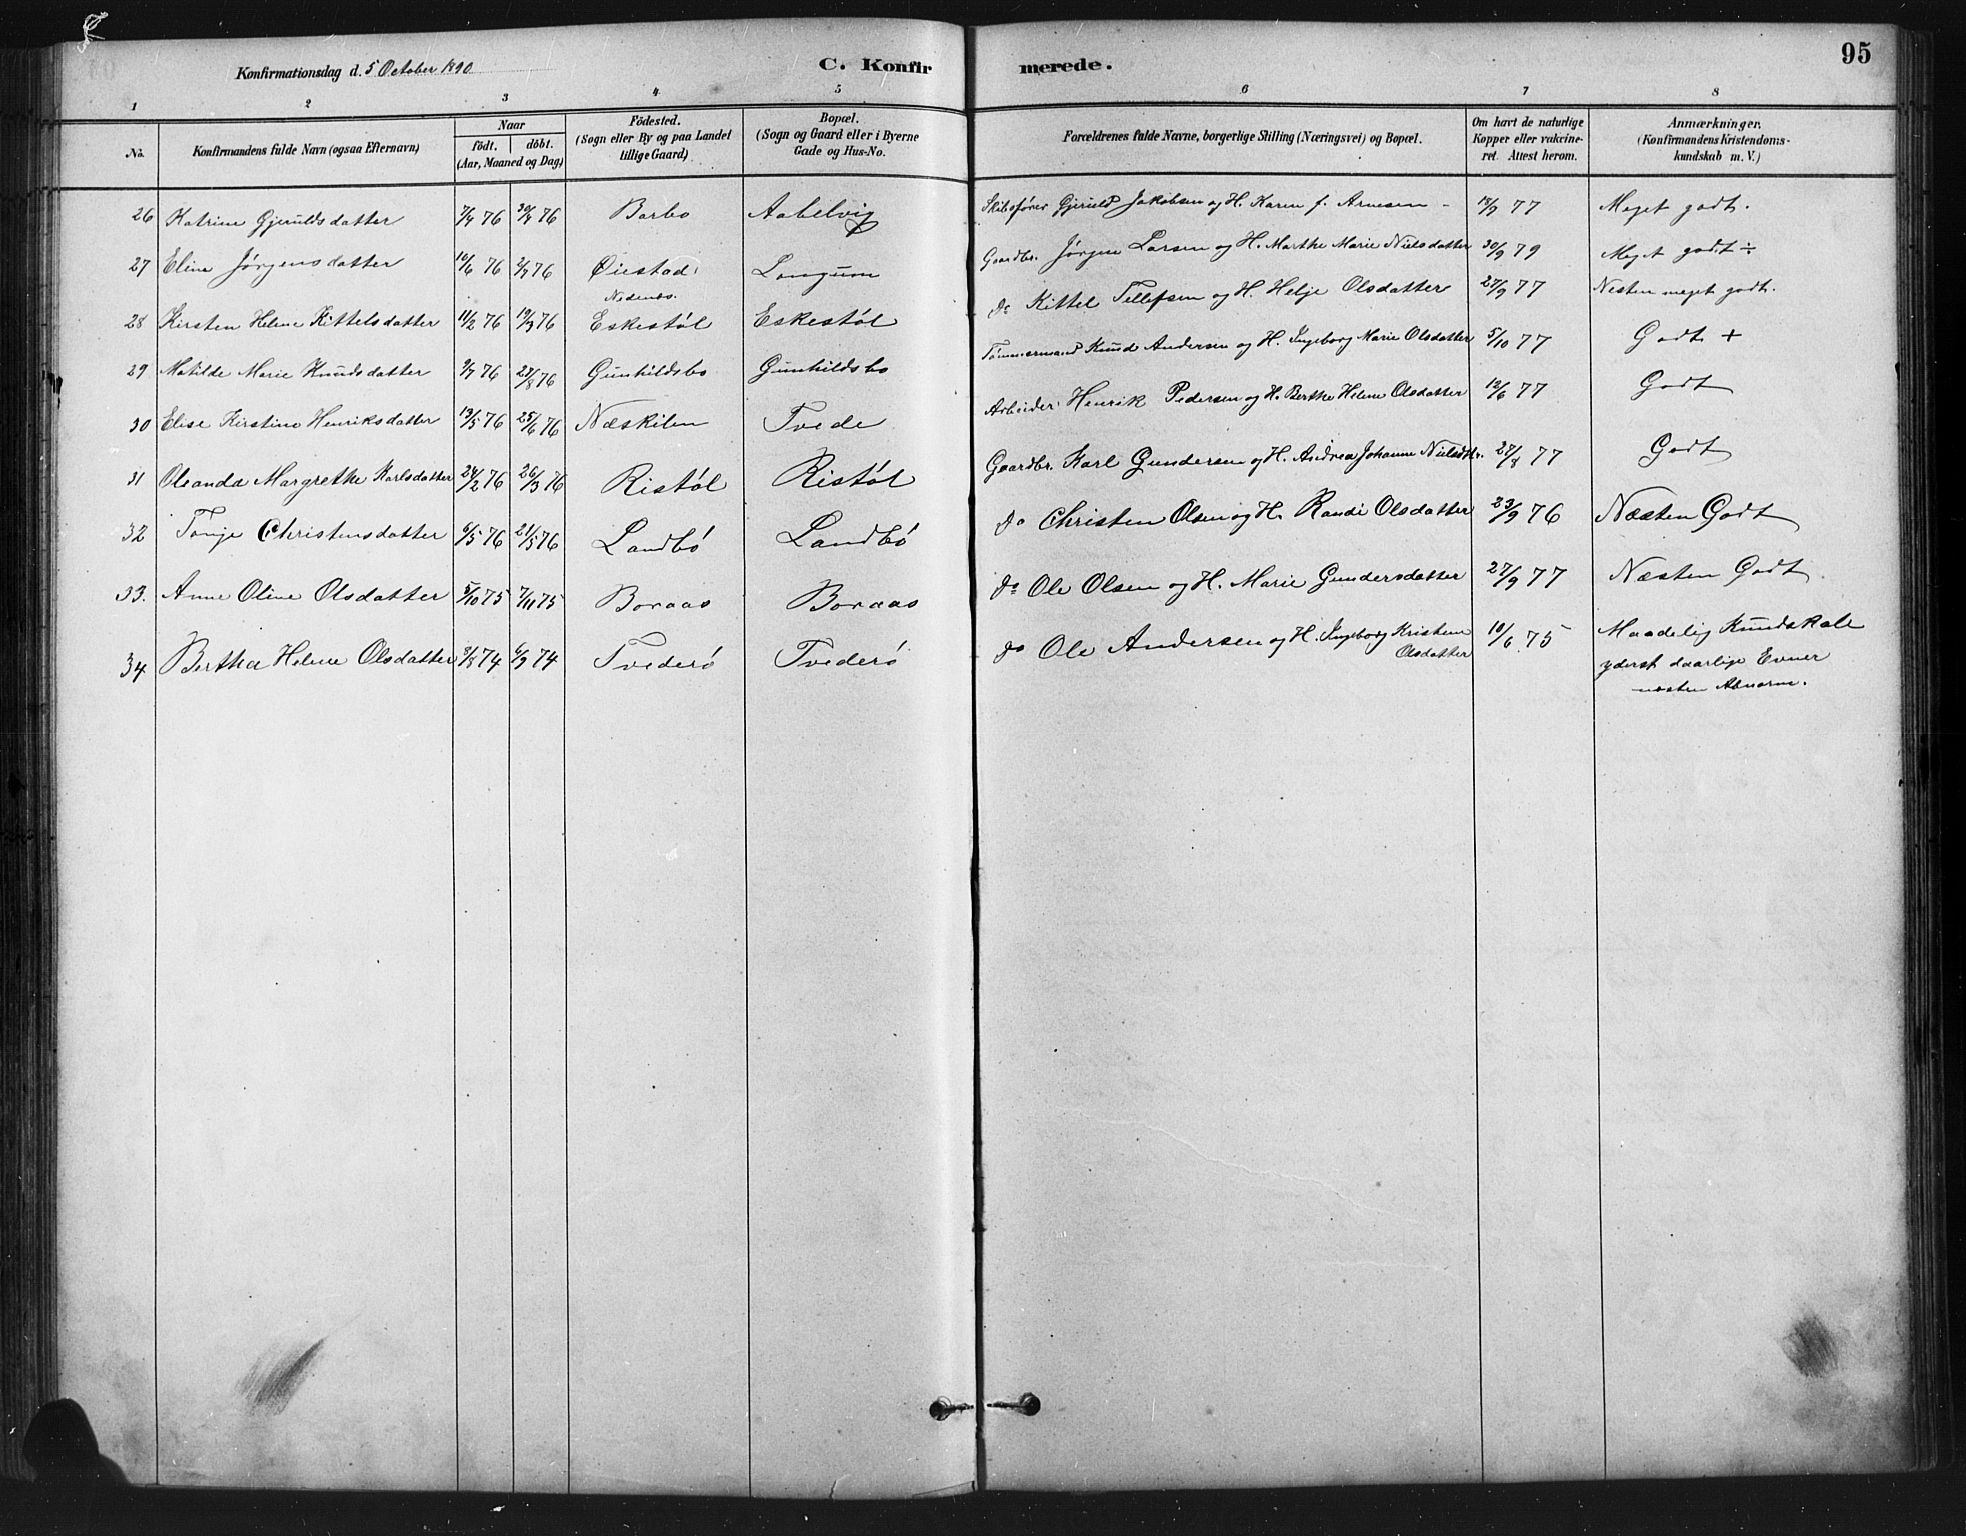 Konfirmationsdag d. 5 October 1890
C. Konfirmerede.
95
1 2 3 4 5 6 7 8
No. | Konfirmandens fulde Navn (ogsaa Efternavn) | Naar födt. döbt. (Aar, Maaned og Dag) | Födested. (Sogn eller By og paa Landet tillige Gaard) | Bopæl. (Sogn og Gaard eller i Byerne Gade og Hus-No. | Forældrenes fulde Navne, borgerlige Stilling (Næringsvei) og Bopæl. | Om havt de naturlige Kopper eller vakcineret. Attest herom. | Anmærkninger. (Konfirmandens Kristendomskundskab m. V.)
26 Katrine Gjeruldsdatter 7/4 76 30/4 76 Barbo Aabelvig Skibsfører Gjeruld Jakobsen og H. Karen f. Arnesen - 13/9 77 Meget godt.
27 Eline Jørgensdatter 10/6 76 2/7 76 Øiestad Longum Gaardbr. Jørgen Larsen og H. Marthe Marie Nielsdatter 30/9 79 Meget godt ÷
28 Kirsten Helene Kittelsdatter 11/2 76 19/3 76 Nedenæs. Eskestøl Eskestøl do Kittel Tellefsen og H. Helje Olsdatter 27/9 77 Nesten meget godt.
29 Matilde Marie Knudsdatter 9/7 76 27/8 76 Gunhildsbo Gunhildsbo Tømmermand Knud Andersen og H. Ingeborg Marie Olsdatter 5/10 77 Godt +
30 Elise Kirstine Henriksdatter 13/5 76 25/6 76 Næskilen Tvede Arbeider Henrik Pedersen og H. Berthe Helene Olsdatter 12/6 77 Godt
31 Oleanda Margrethe Karlsdatter 24/2 76 26/3 76 Ristøl Ristøl Gaardbr. Karl Gundersen og H. Andrea Johanne Nielsdtr. 27/8 77 Godt
32 Tønje Christensdatter 6/5 76 21/5 76 Landbö Landbö do Christen Olsen og H. Randi Olsdatter 23/9 76 Næsten Godt
33. Anne Oline Olsdatter 5/10 75 7/11 75 Boraas Boraas do Ole Olsen og H. Marie Gundersdatter 27/9 77 Næsten Godt
34 Bertha Helene Olsdatter 3/8 74 6/9 74 Tvederö Tvederö do Ole Andersen og H. Ingeborg Kristine Olsdatter 10/6 75 Maadelig Kundskab
yderst daarlige Evner
næsten Abnorm.